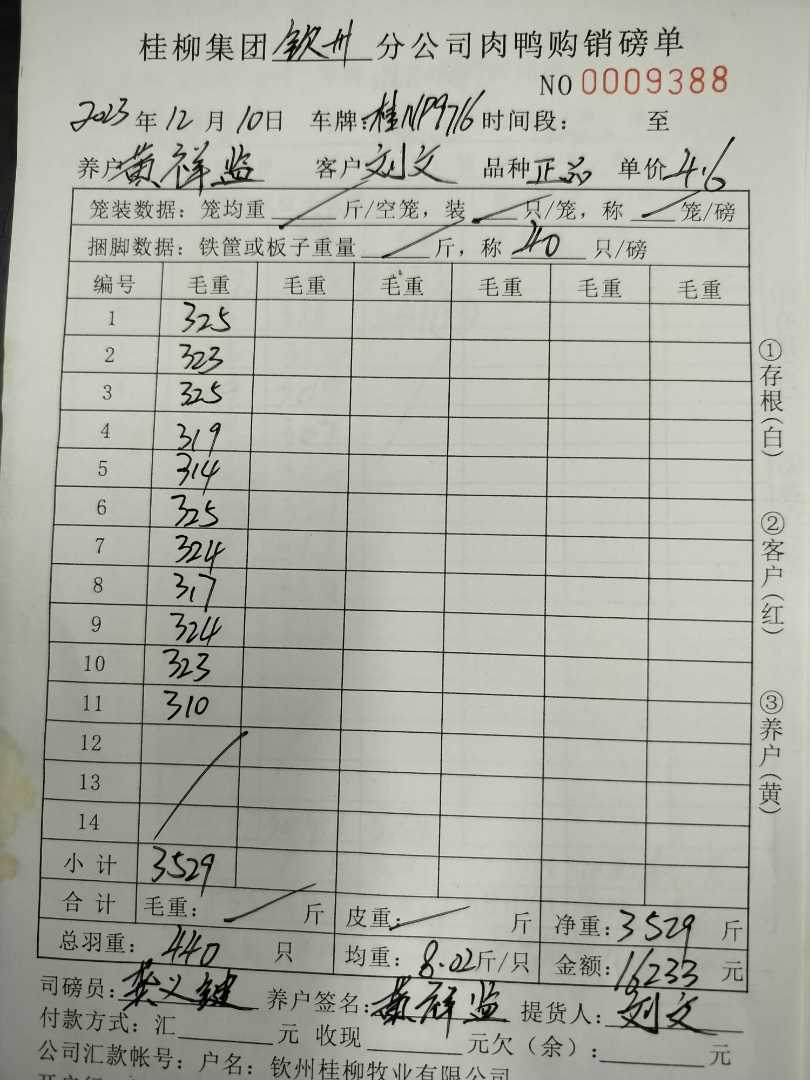 桂柳集团钦州分公司肉鸭购销磅单
NO 0009388
2023年12月10日 车牌:桂NP9716 时间段: 至
养户黄祥监 客户刘文 品种正品 单价4.6
笼装数据: 笼均重 / 斤/空笼, 装 / 只/笼, 称 / 笼/磅
捆脚数据: 铁筐或板子重量 / 斤, 称 40 只/磅
编号 毛重 毛重 毛重 毛重 毛重 毛重
1 325
2 323
3 325
4 319
5 314
6 325
7 324
8 317
9 324
10 323
11 310
12
13
14
小计 3529
合计 毛重: / 斤 皮重: / 斤 净重: 3529 斤
总羽重: 440 只 均重: 8.02斤/只 金额: 16233 元
司磅员: 龚义键 养户签名: 黄祥监 提货人: 刘文
付款方式: 汇 元 收现 元欠(余): 元
公司汇款帐号: 户名: 钦州桂柳牧业有限公司
①存根(白)
②客户(红)
③养户(黄)